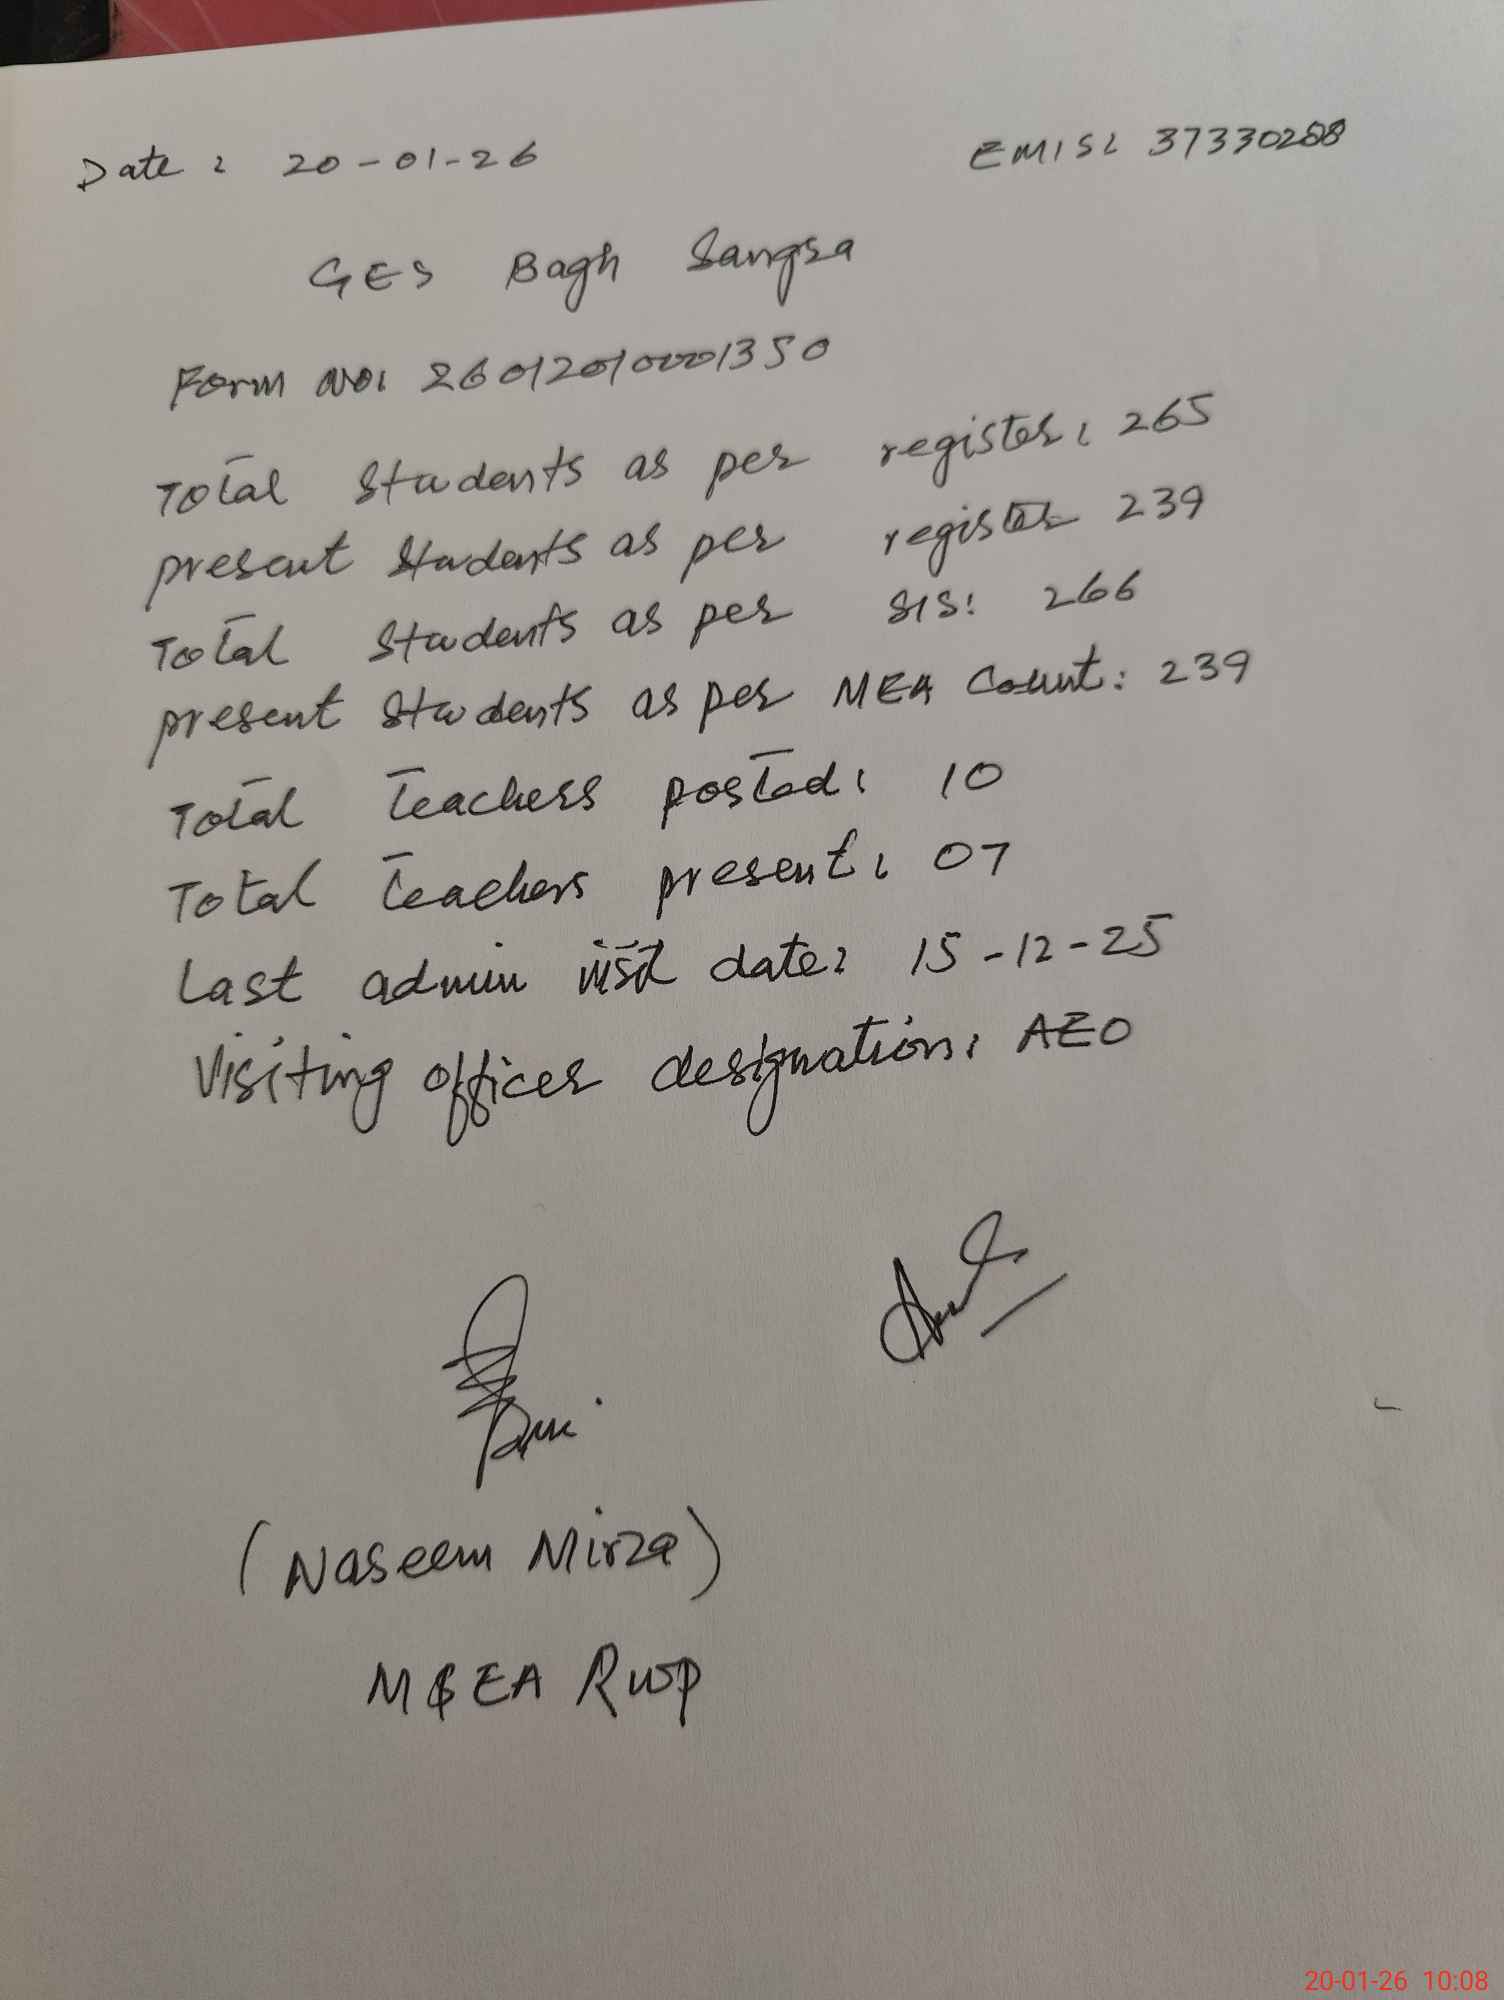 Date: 20-01-26 EMIS: 37330288
GES Bagh Sangra
Form No: 26012010001350
Total Students as per register: 265
present Students as per register 239
Total Students as per SIS: 266
present Students as per MEA Count: 239
Total Teachers posted: 10
Total Teachers present: 07
Last admin visit date: 15-12-25
Visiting officer designation: AEO
(Naseem Mirza)
M&EA Rwp
20-01-26 10:08